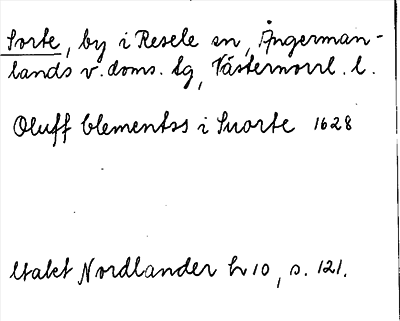 Sorte, by i Resele sn, Ångerman-
lands v. doms. tg, Västernorrl. l.
Oluff Clementss i Suorte 1628
Utakt Nordlander h 10, s. 121.